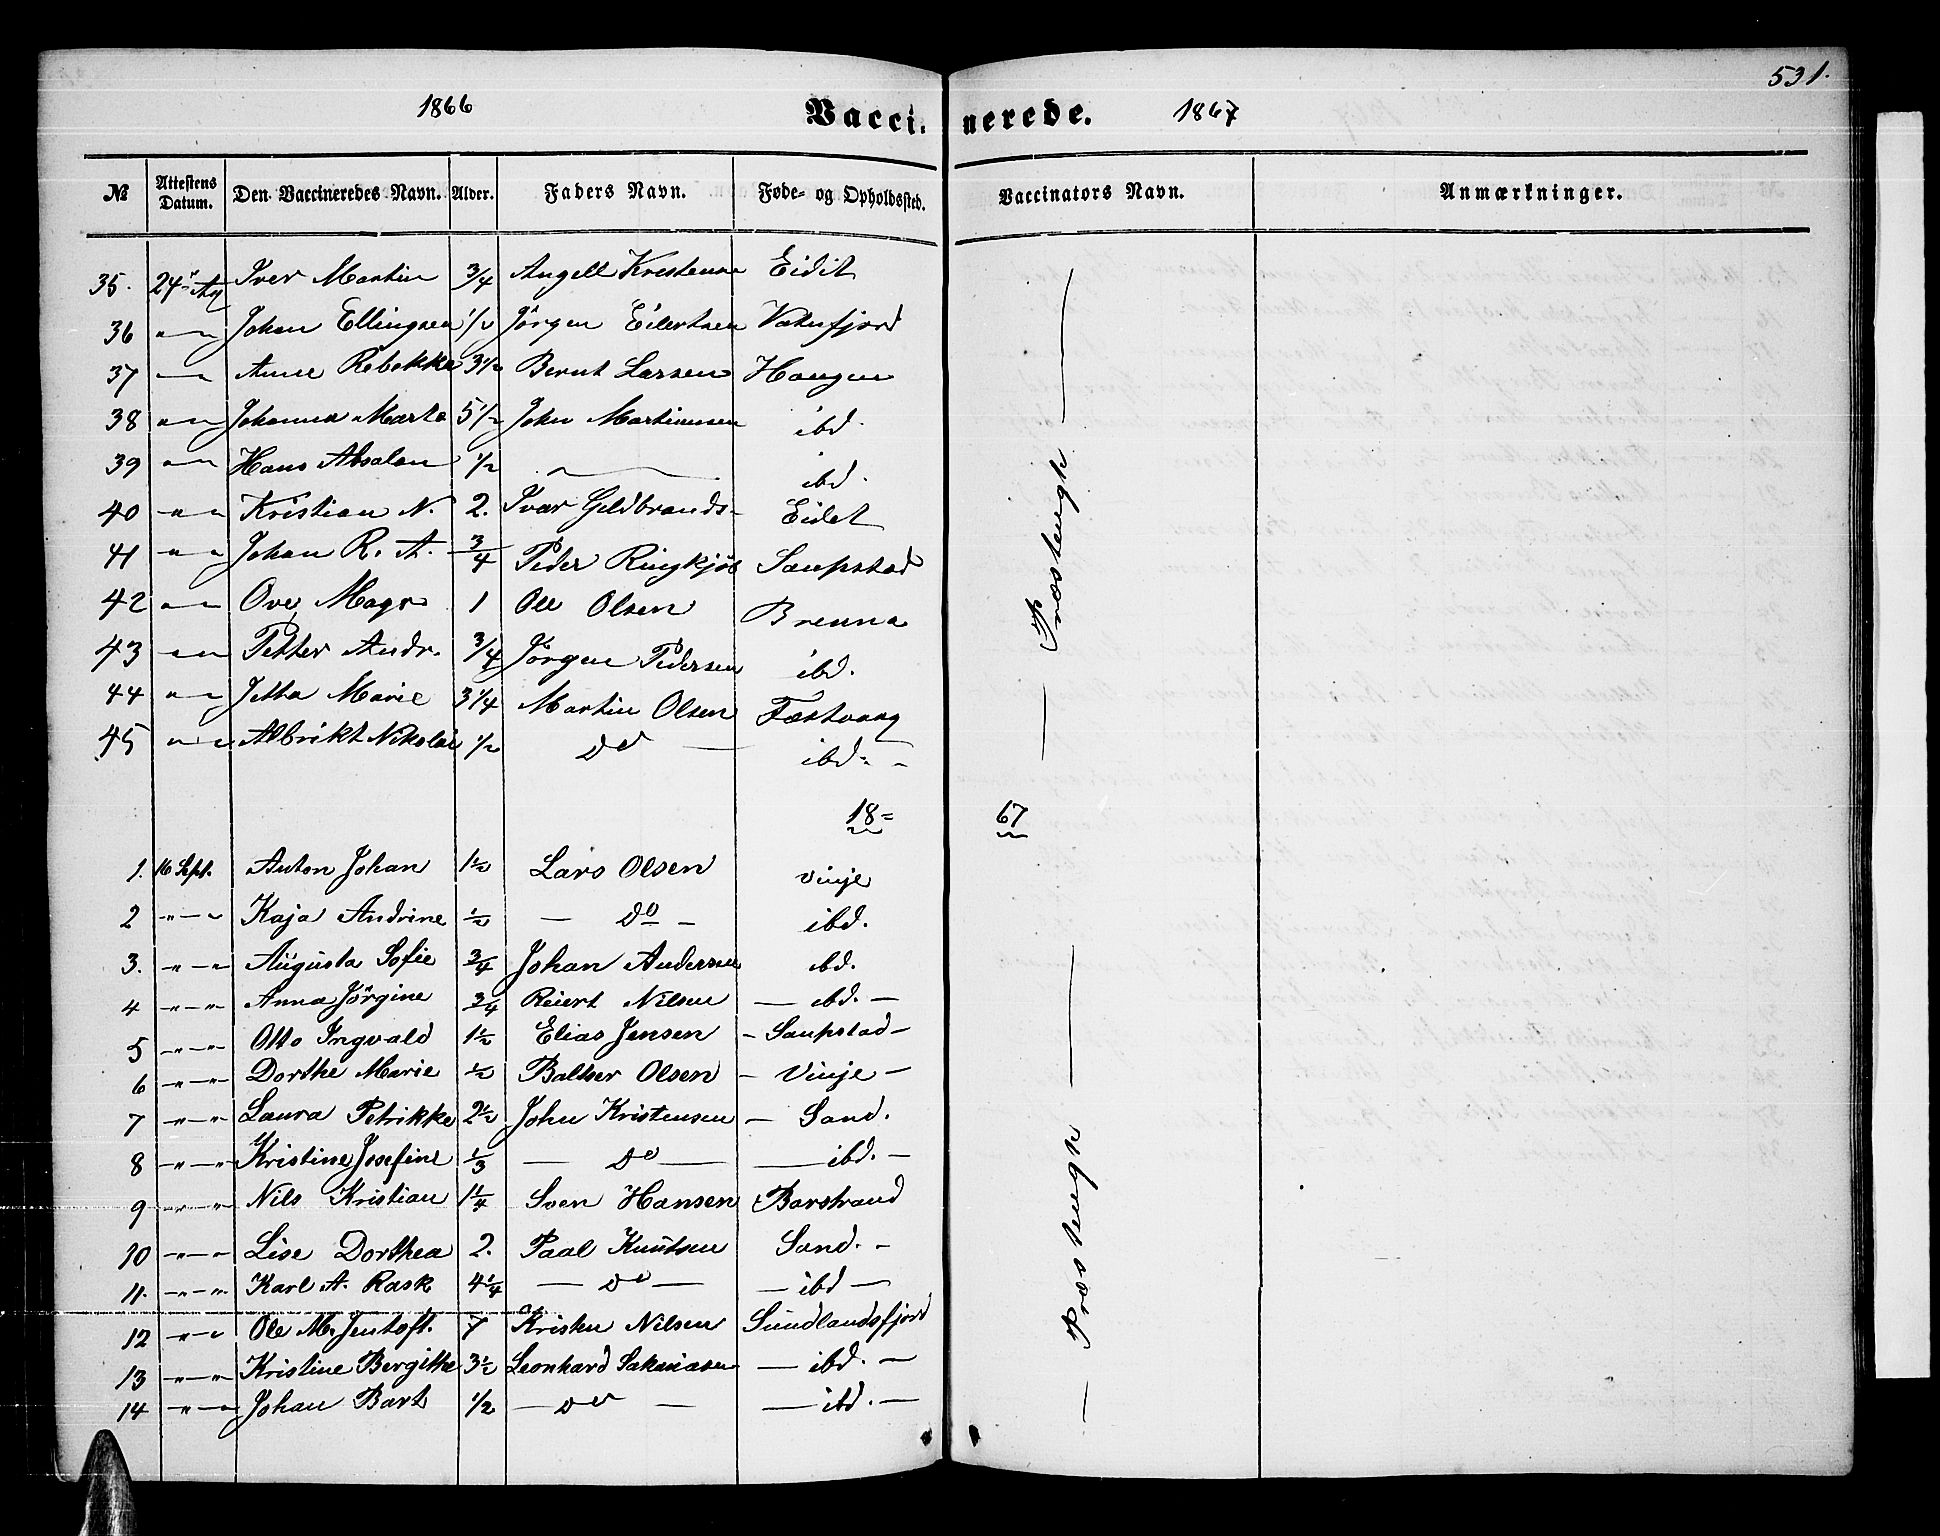 531.
1866 Vacci- nerede. 1867
№ Attestens Datum. Den Vaccineredes Navn. Alder. Faders Navn. Føde- og Opholdssted. Vaccinators Navn. Anmærkninger.
35. 24 Iver Martin 3/4 Angell Eidit
36 "— Johan Ellingsen 1/2 Jörgen Eilertsen Vatnfjord
37 — Anne Rebekka 3 1/2 Bernt Larsen Haugen
38 "— Johanna Marta 5 1/2 John Martinusen ibd.
39 "— Hans Absalon 1/2 — ibd.
40 "— Kristian N. 2. Ivar Gildbrands- Eidet
41 "— Johan R. A. 3/4 Peder Ringkjöb Saupstad
42 "— Ove Magn 1 Ole Olsen Brenna
43 "— Petter Andr. 3/4 Jörgen Pedersen ibd.
44 "— Jetta Marie 3 1/4 Martin Olsen Fæstvaag
45 "— Albrikt Nikolai 1/2 Do — ibd. -
— Præstengh —
18= 67
1. 16 Sept. Anton Johan 1 1/2 Lars Olsen Vinje
2 "— Kaja Andrine 1/2 — Do — ibd.
3. "—" Augusta Sofie 3/4 Johan Andersen ibd.
4 "—" Anna Jörgine 3/4 Reiert Nilsen — ibd. —
5 "—" Otto Ingvald 1 1/2 Elias Jensen - Saupstad -
6 "—" Dorthe Marie 1/2 Baltser Olsen - Vinje -
7 "—" Laura Petrikke 2 1/2 John Kristensen - Sand.
8 "—" Kristine Josefine 1/3 — Do — — ibd. —
9 "—" Nils Kristian 1 1/4 Sven Hansen Barstrand
10 "—" Lise Dorthea 2. Paal Knutsen Sand. -
11. "—" Karl A. Rask 4 1/4 — Do — — ibd —
12 "—" Ole M. Jentoft. 7 Kristen Nilsen Sundlandsfjord
13 "—" Kristine Bergithe 3 1/2 Leonhard Sakariasen — ibd. —
14 "—" Johan Bart 1/2 — Do — — ibd. —
— Præstengh —